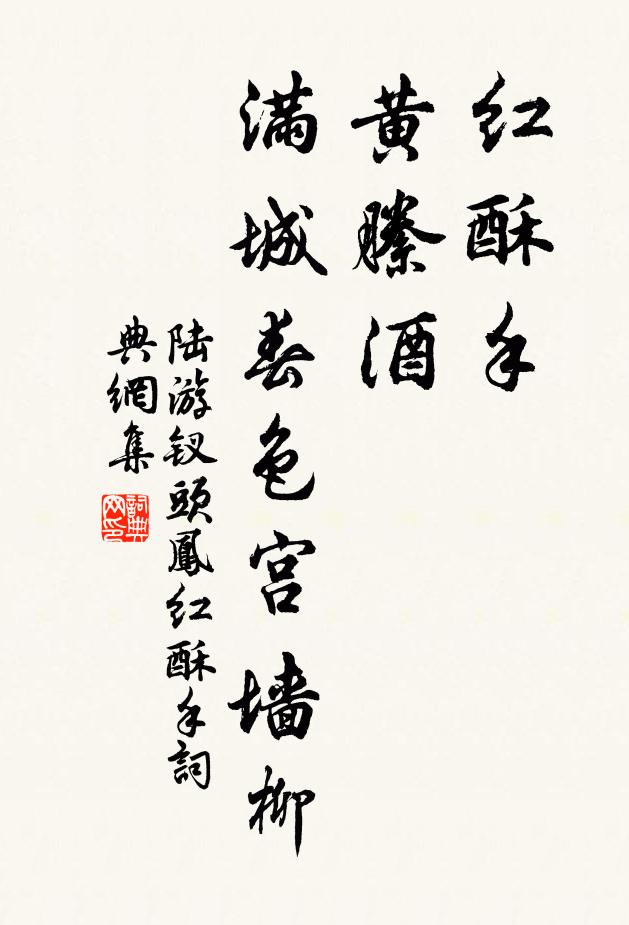 红酥手
黄縢酒
满城春色宫墙柳
陆游钗頭鳳红酥手詞
典網集
詞典
网印